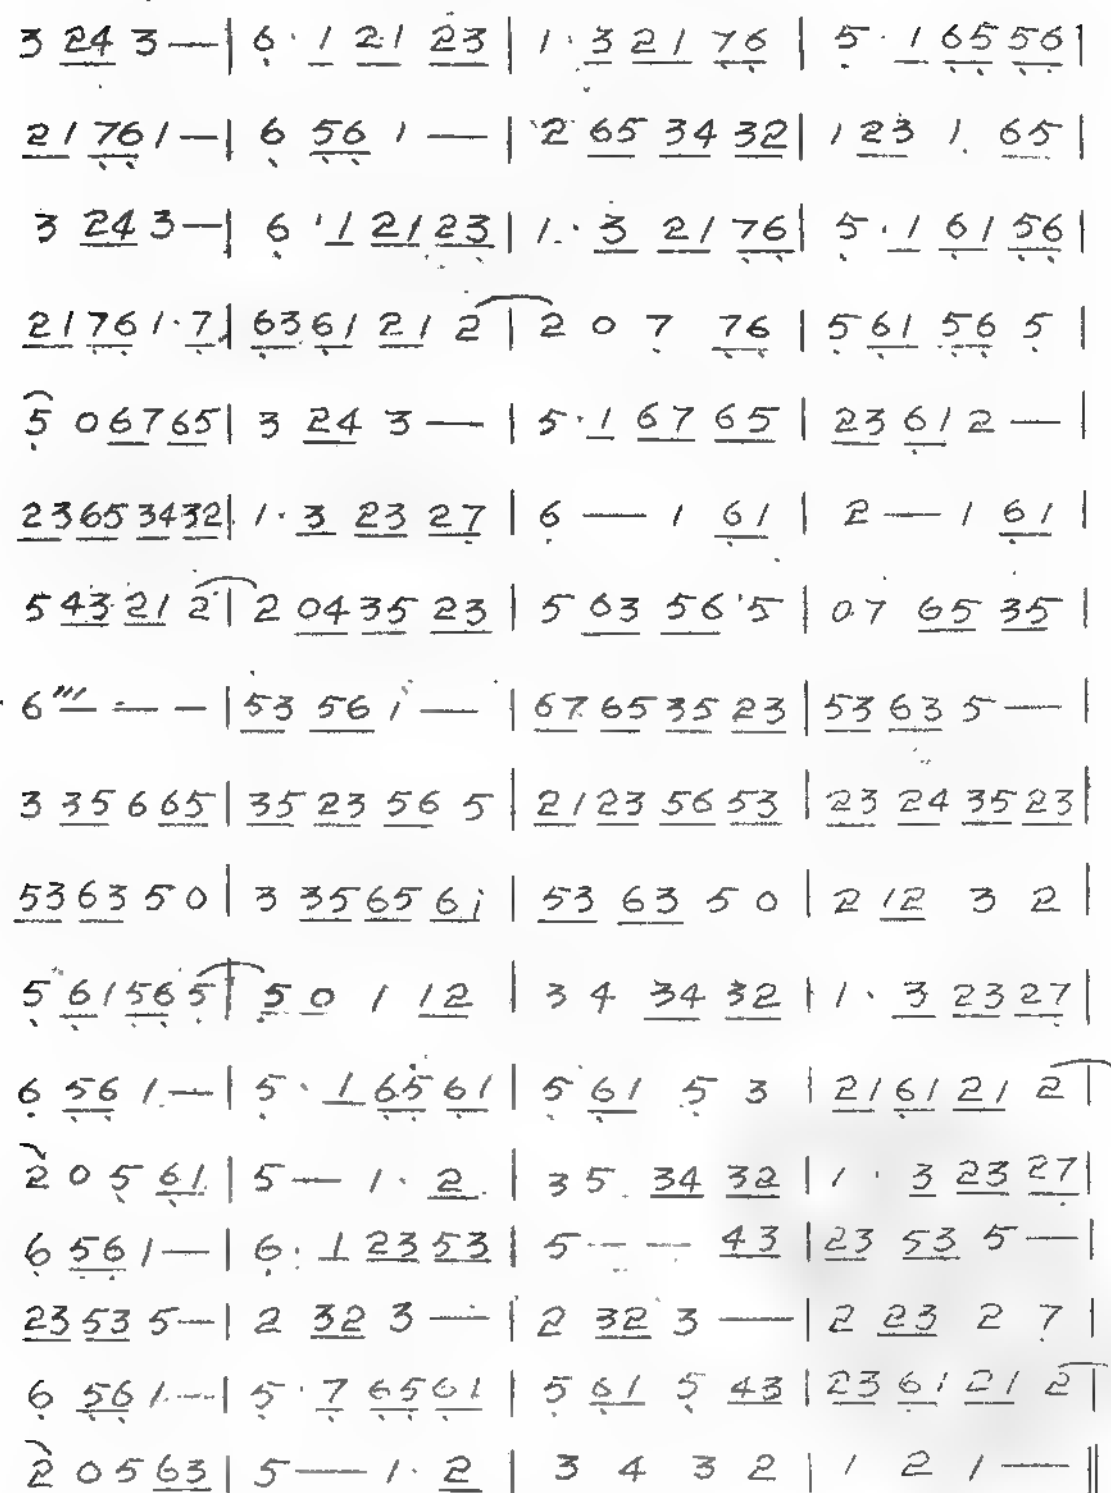 3 24 3 — | 6 · 1 21 23 | 1 · 3 21 76 | 5 · 1 65 56 |
21 76 1 — | 6 56 1 — | 2 65 34 32 | 1 23 1 . 65 |
3 24 3 — | 6 · 1 21 23 | 1 · 3 21 76 | 5 · 1 61 56 |
21 76 1 · 7 | 63 61 21 2 | 2 0 7 76 | 5 61 56 5 |
5 0 67 65 | 3 24 3 — | 5 · 1 67 65 | 23 61 2 — |
23 65 34 32 | 1 · 3 23 27 | 6 — 1 61 | 2 — 1 61 |
5 43 21 2 | 2 04 35 23 | 5 63 56 5 | 07 65 35 |
6 ''' — — — | 53 56 i — | 67 65 35 23 | 53 63 5 — |
3 35 6 65 | 35 23 56 5 | 21 23 56 53 | 23 24 35 23 |
53 63 5 0 | 3 35 65 6i | 53 63 5 0 | 2 12 3 2 |
5 61 56 5 | 5 0 1 12 | 3 4 34 32 | 1 · 3 23 27 |
6 56 1 — | 5 · 1 65 61 | 5 61 5 3 | 21 61 21 2 |
2 0 5 61 | 5 — 1 · 2 | 3 5 34 32 | 1 · 3 23 27 |
6 56 1 — | 6 · 1 23 53 | 5 — — 43 | 23 53 5 — |
23 53 5 — | 2 32 3 — | 2 32 3 — | 2 23 2 7 |
6 56 1 — | 5 · 7 65 61 | 5 61 5 43 | 23 61 21 2 |
2 0 5 63 | 5 — 1 · 2 | 3 4 3 2 | 1 2 1 — ||